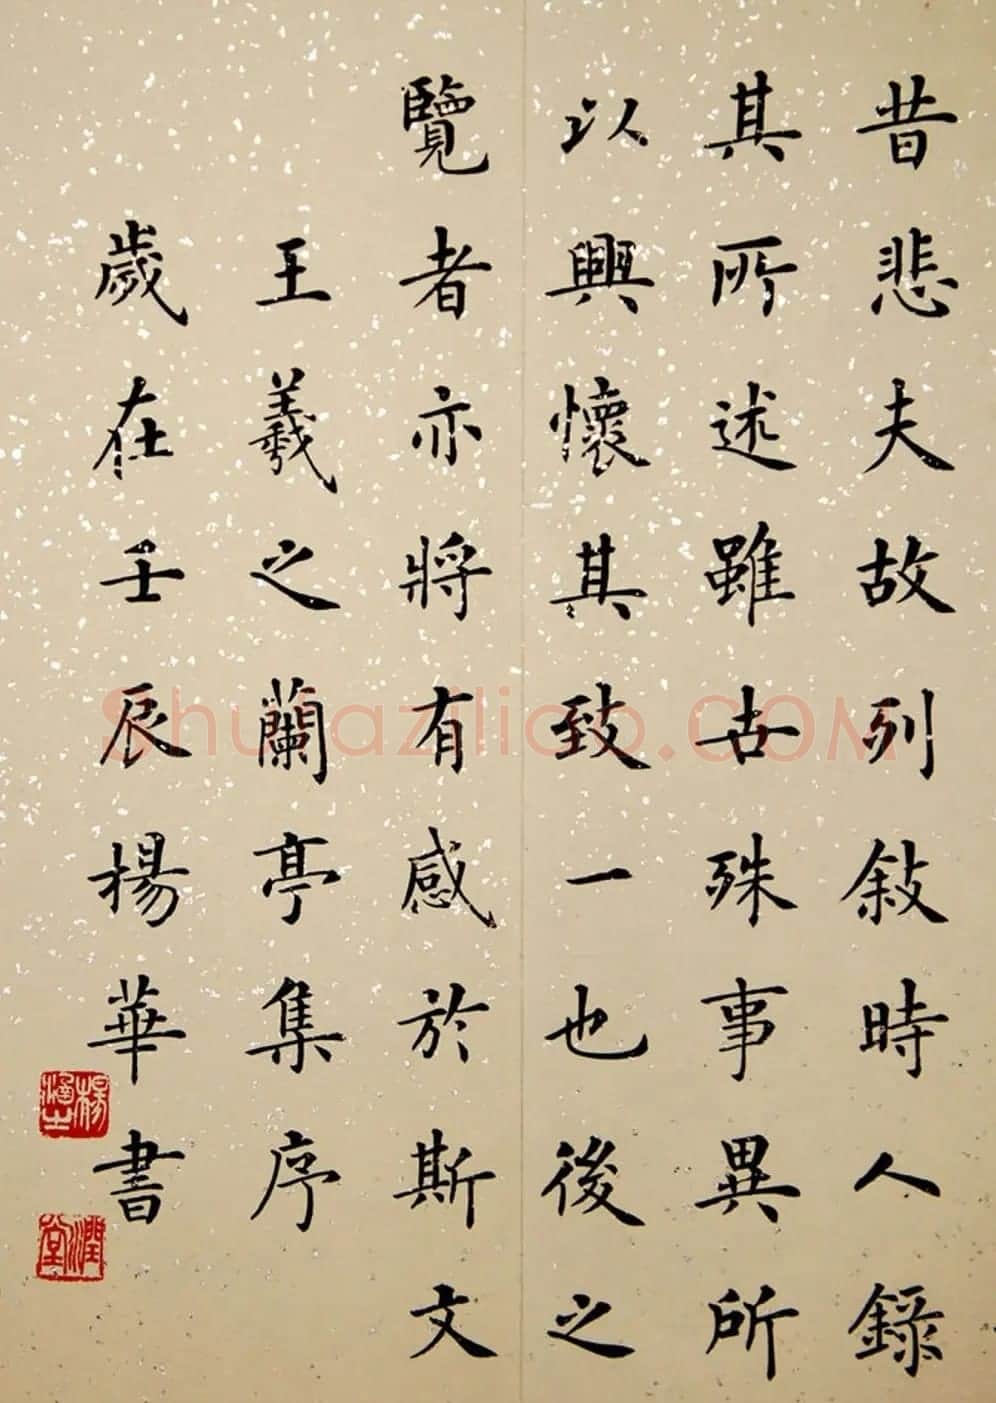 昔悲夫故列敘時人錄
其所述雖古殊事異所
以興懷其致一也後之
覽者亦將有感於斯文
王羲之蘭亭集序
歲在壬辰楊華書
潤堂
Shufaziliao.COM